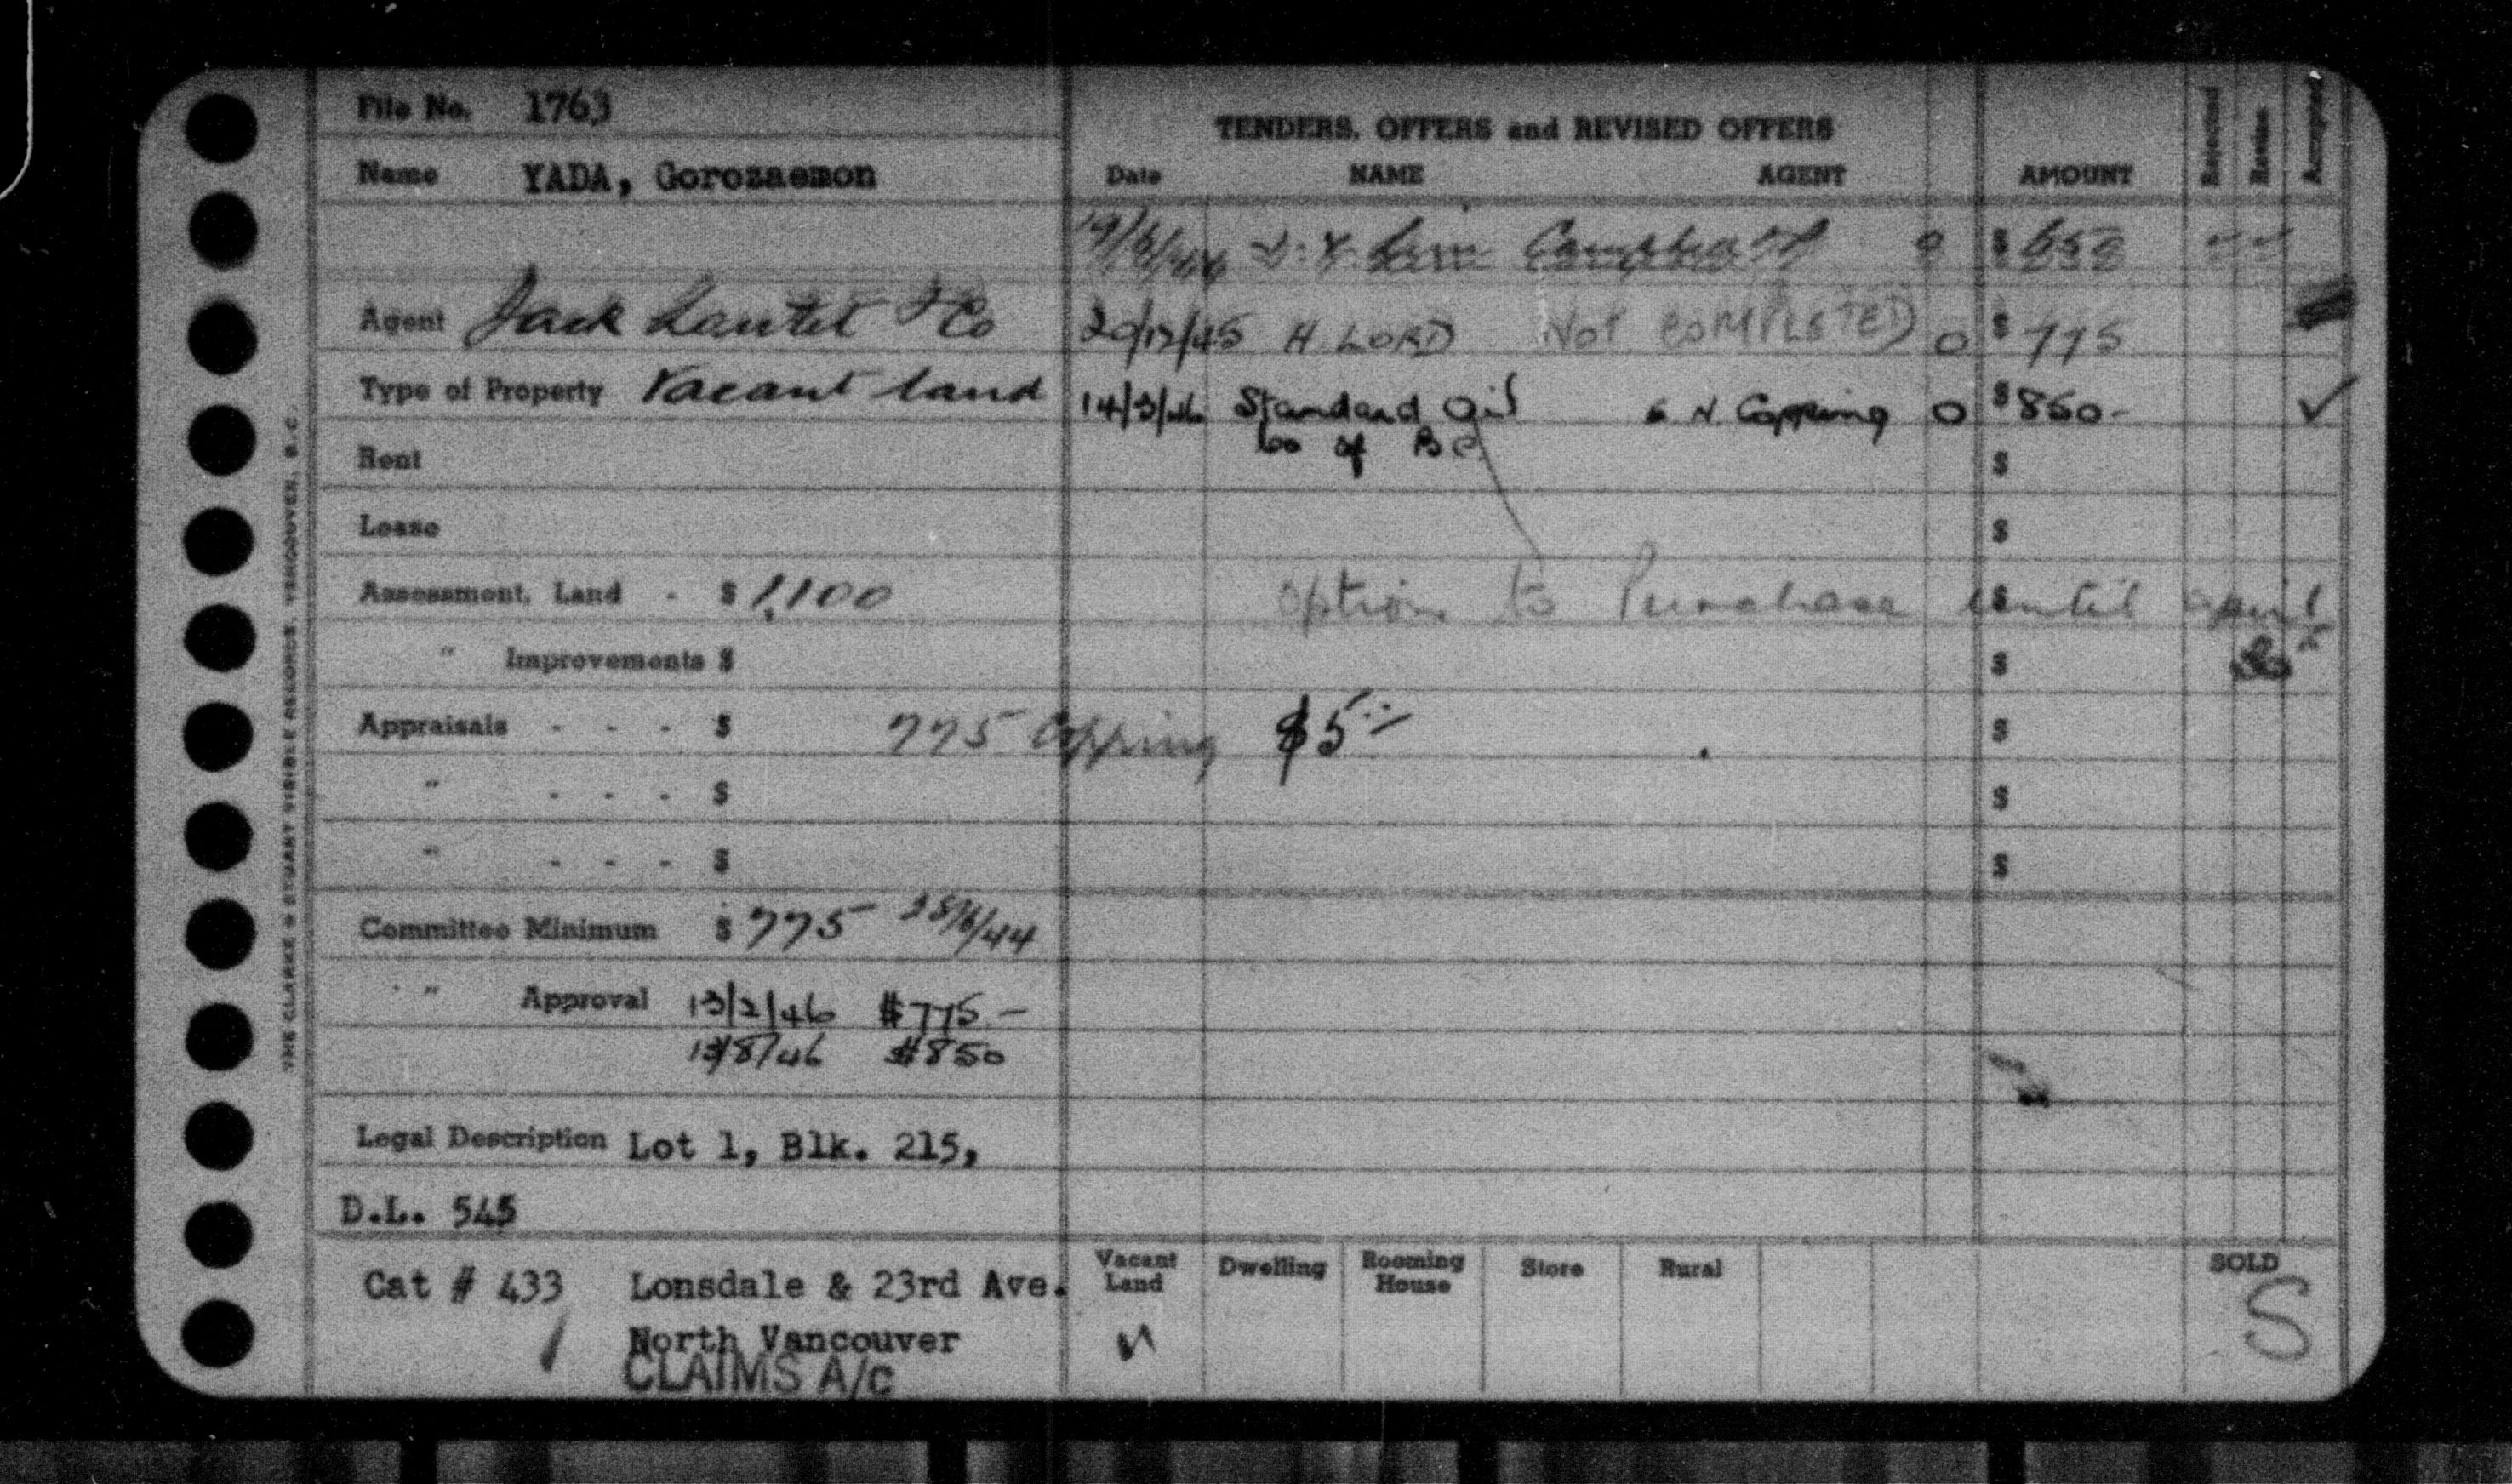 File No. 1763
Name YADA, Gorozaemon
Agent Jack Lautet & Co
Type of Property Vacant land
Rent
Lease
Assessment, Land - $ 1,100
" Improvements $
Appraisals - - - $ 775 Copping $5
" - - - $
" - - - $
Committee Minimum $ 775 /44
" Approval 13/2/46 $775.-
13/8/46 $850
Legal Description Lot 1, Blk. 215,
D.L. 545
Cat # 433 Lonsdale & 23rd Ave.
North Vancouver
CLAIMS A/c
THE CLARKE & STUART VISIBLE RECORDS. VANCOUVER, B.C.
TENDERS, OFFERS and REVISED OFFERS
Date NAME AGENT AMOUNT Rejected Revise Accepted
/44 Campbell 0 $ 650
20/12/45 H. LORD NOT COMPLETED 0 $ 775
14/3/46 Standard Oil Copping 0 $ 850-
Co of BC $
$
Option to Purchase until April $
$
$
$
$
Vacant Land Dwelling Rooming House Store Rural SOLD
S